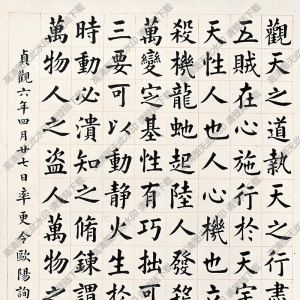 觀天之道執天之行盡
五賊在心施行於天
天性人也人心機也
殺機龍虵起陸人發
萬變定基性有巧拙可
三要可以動靜火生於
時動必潰知之脩鍊謂
萬物人之盜人萬物之
貞觀六年四月廿七日率更令歐陽詢